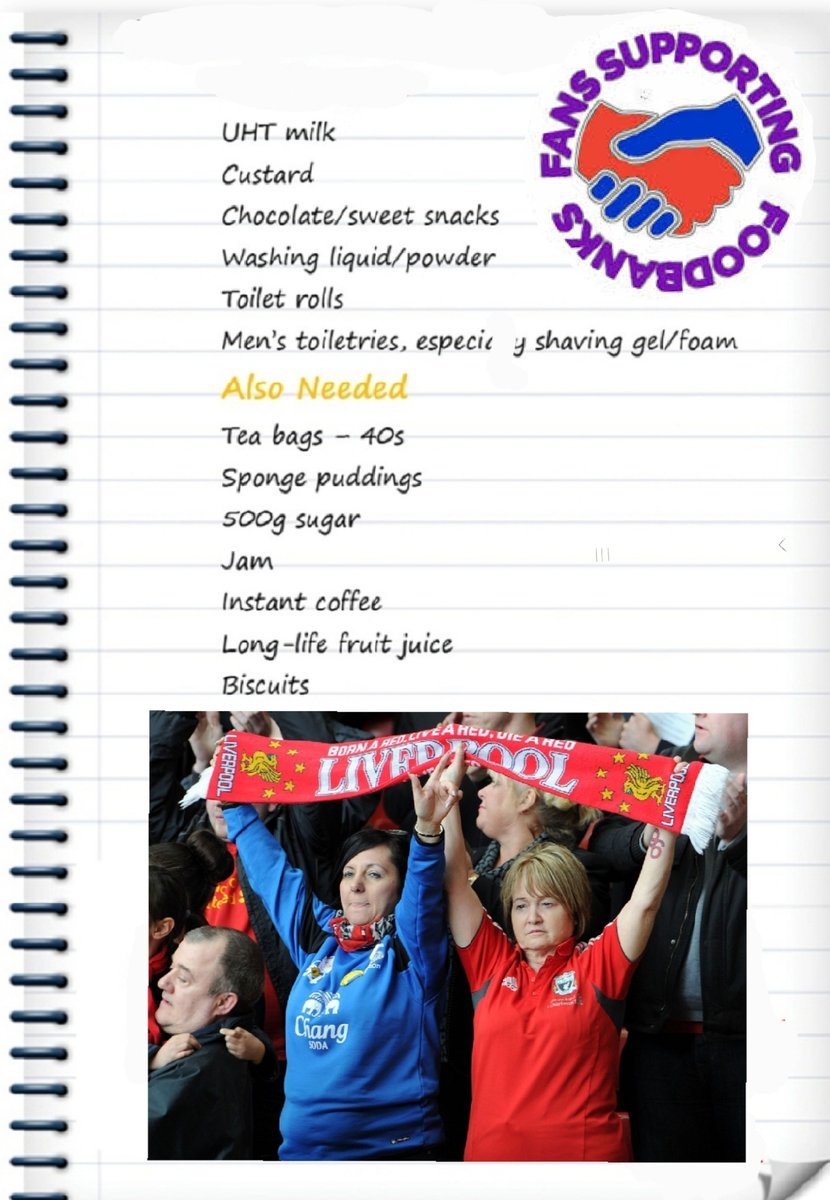 FANS SUPPORTING
FOODBANKS
UHT milk
Custard
Chocolate/sweet snacks
Washing liquid/powder
Toilet rolls
Men's toiletries, especia y shaving gel/foam
Also Needed
Tea bags – 40s
Sponge puddings
500g sugar
Jam
Instant coffee
Long-life fruit juice
Biscuits
BORN A RED, LIVE A RED, DIE A RED
LIVERPOOL
LIVERPOOL
LIVERPO
Chang
SODA